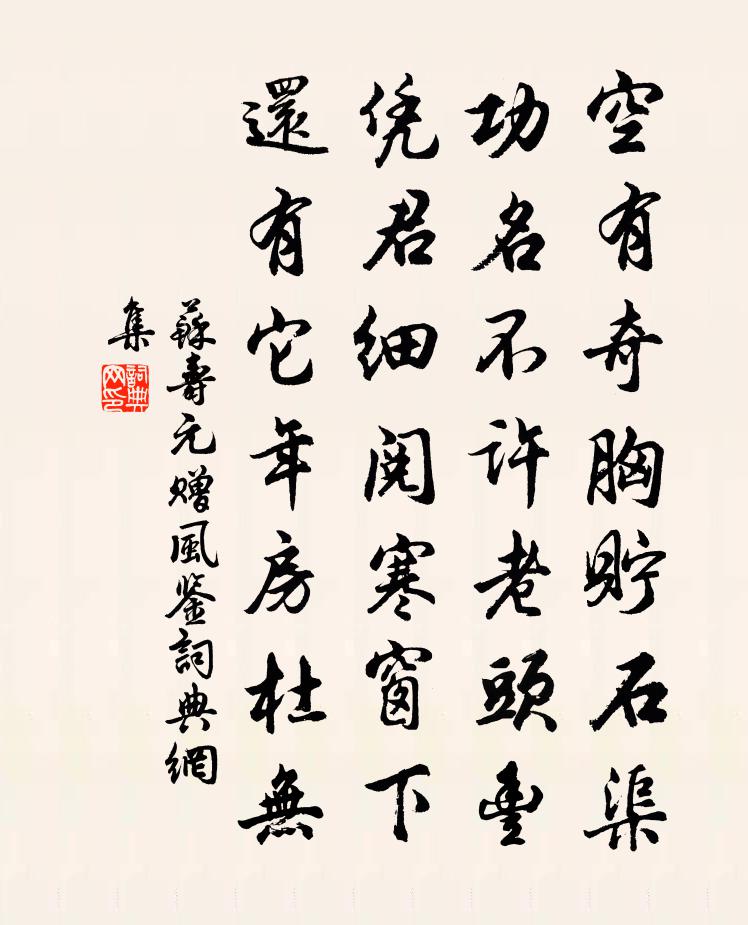 空有奇胸貯石渠
功名不許老頭
凭君細閱寒窗下
還有它年房杜無
蘇壽元贈風鉴詞典網
集
詞典网印